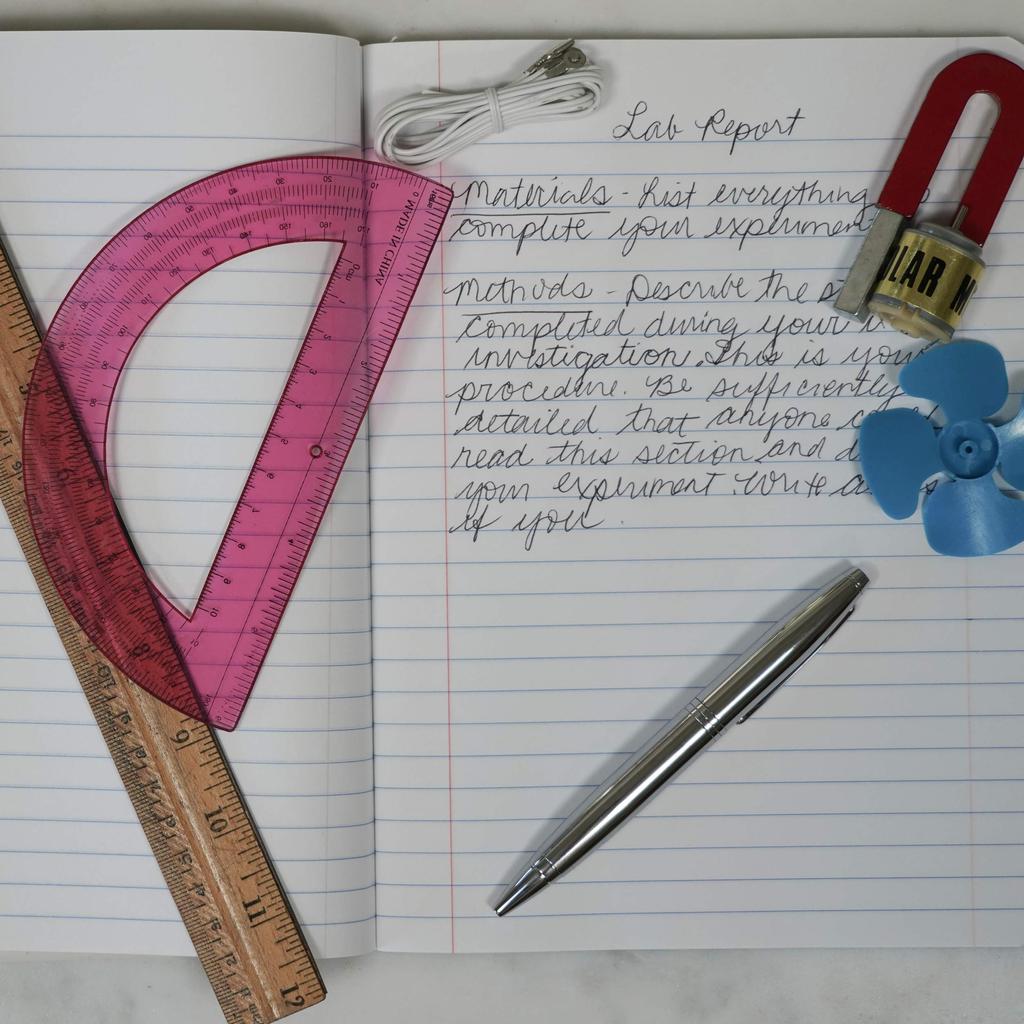 Lab Report
Materials - List everything
complete your experiment
Methods - Describe the
completed during your
investigation. This is your
procedure. Be sufficiently
detailed that anyone
read this section and
your experiment. Write as
if you
MADE IN CHINA
LAR M
9
10
11
12